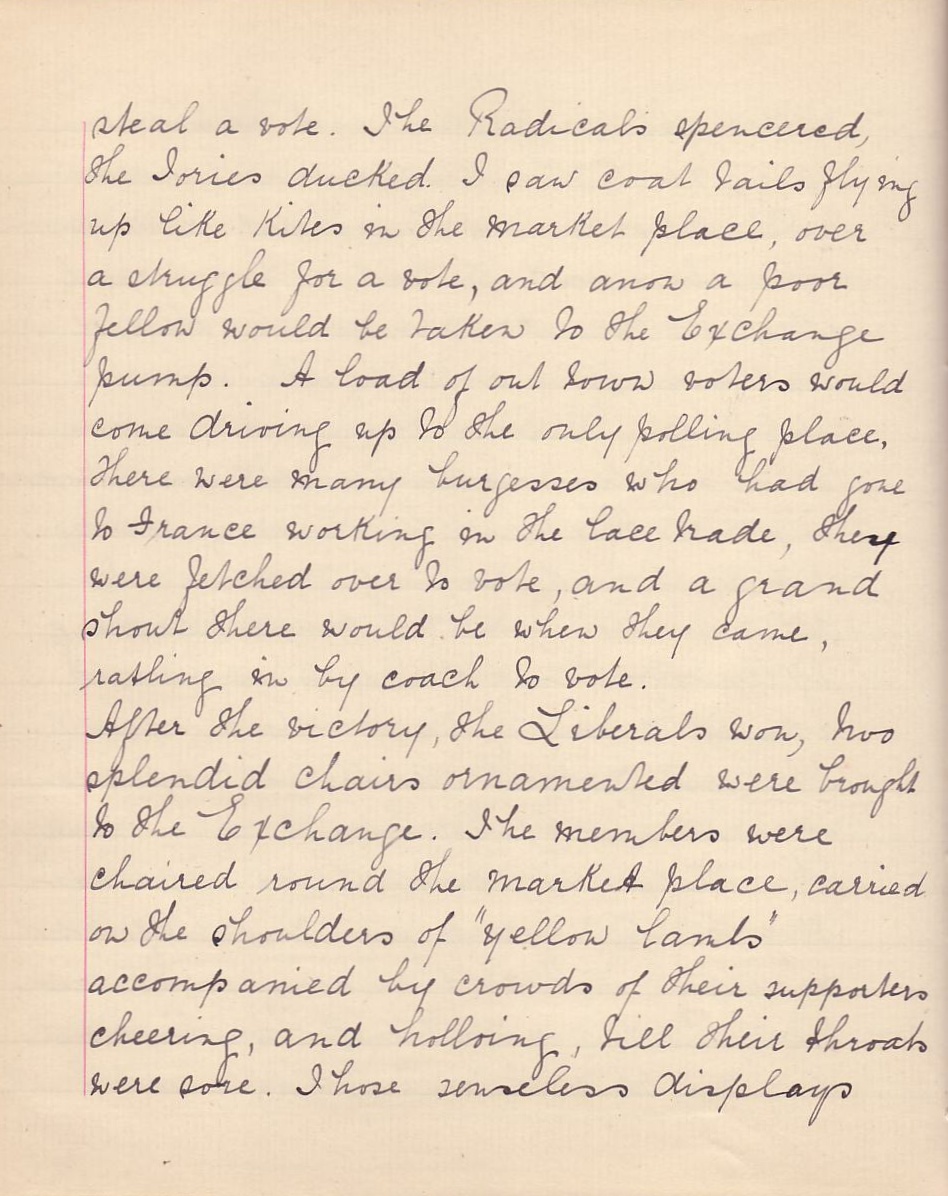 steal a vote. The Radicals spencered,
the Tories ducked. I saw coat tails flying
up like kites in the market place, over
a struggle for a vote, and anon a poor
fellow would be taken to the Exchange
pump. A load of out town voters would
come driving up to the only polling place,
there were many burgesses who had gone
to France working in the lace trade, they
were fetched over to vote, and a grand
shout there would be when they came,
ratling in by coach to vote.
After the victory, the Liberals won, two
splendid chairs ornamented were brought
to the Exchange. The members were
chaired round the market place, carried
on the shoulders of "yellow lambs"
accompanied by crowds of their supporters
cheering, and holloing, till their throats
were sore. Those senseless displays